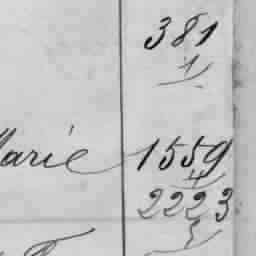 381
1
Marie 1559
4
2223
3